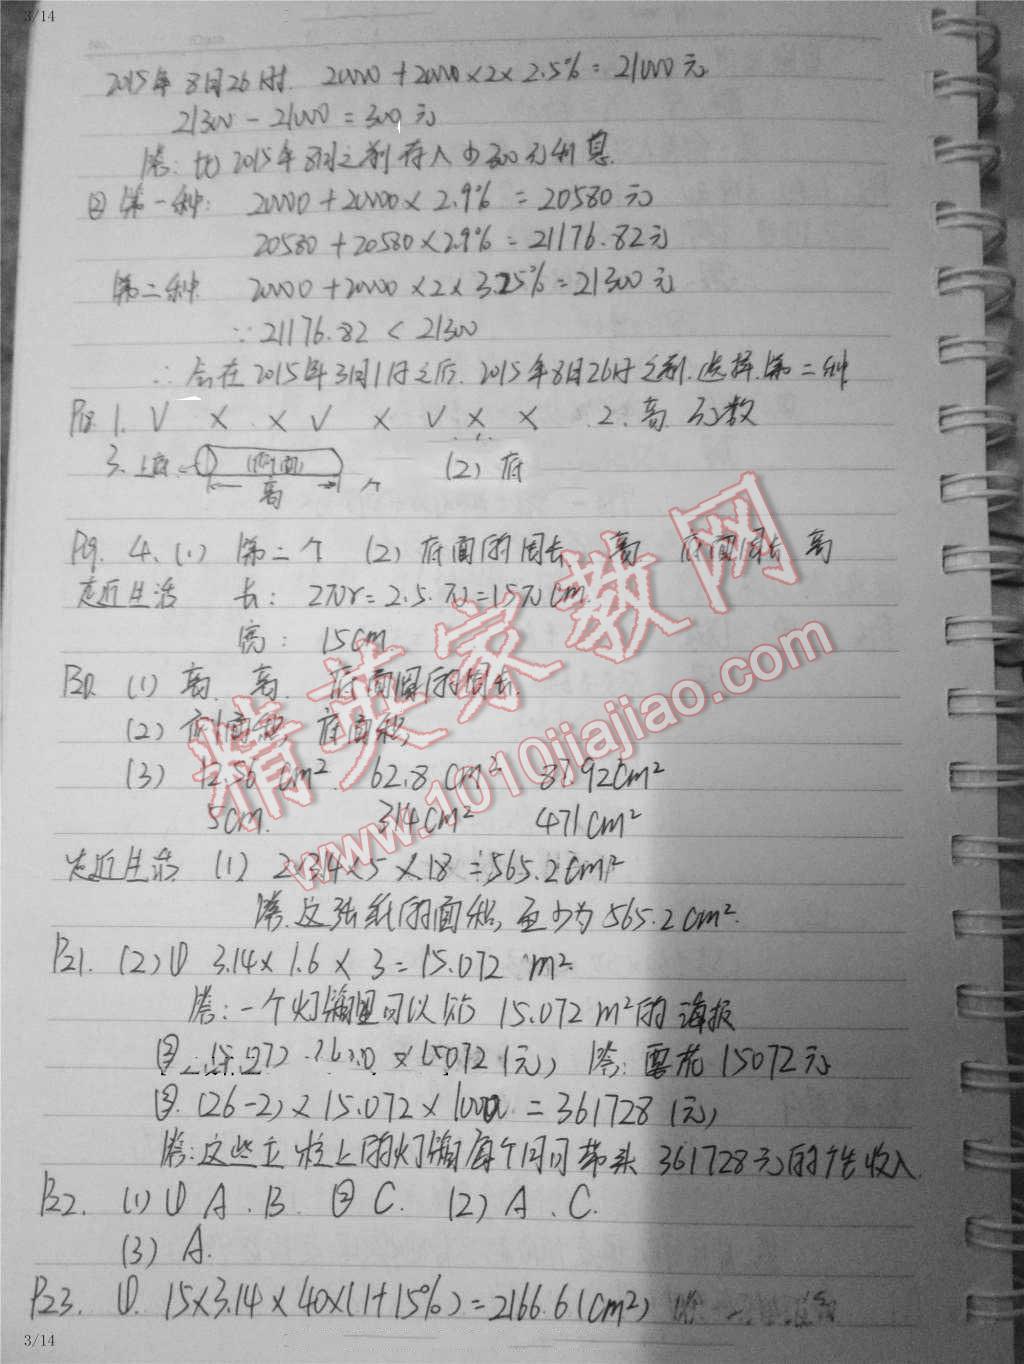 3/14
2015年8月26日时. 20000+20000×2×2.5%=21000元
21300-21000=300元
答:比2015年8月之前存入少300元利息.
②第一种: 20000+20000×2.9%=20580元
20580+20580×2.9%=21176.82元
第二种. 20000+20000×2×3.25%=21300元
∵21176.82<21300
∴会在2015年3月1日之后,2015年8月26日之前,选择第二种
P18. 1. √ × × √ × √ × × 2. 高 无数
3. 上底 (侧面) (2) 底
高
P19. 4.(1) 第二个 (2) 底面的周长 高 底面周长 高
走近生活 长: 2πr=2.5.π=15πcm
高: 15cm
P20. (1) 高. 高. 底面圆的周长.
(2) 侧面积, 底面积,
(3) 12.56cm² 62.8cm² 87.92cm²
5cm. 314cm² 471cm²
走近生活 (1) 2×3.14×5×18=565.2cm²
答.这张纸的面积,至少为565.2cm².
P21. (2)① 3.14×1.6×3=15.072m²
答:一个灯箱里可以贴15.072m²的海报
② 15.072×1000=15072(元) 答:要花15072元
③.(26-2)×15.072×1000=361728(元)
答:这些立柱上的灯箱每个月可带来361728元的广告收入.
P22. (1)① A.B. ② C. (2) A.C.
(3) A.
P23. ①. 15×3.14×40×(1+15%)=2166.6(cm²)
3/14
精英家教网
www.1010jiajiao.com